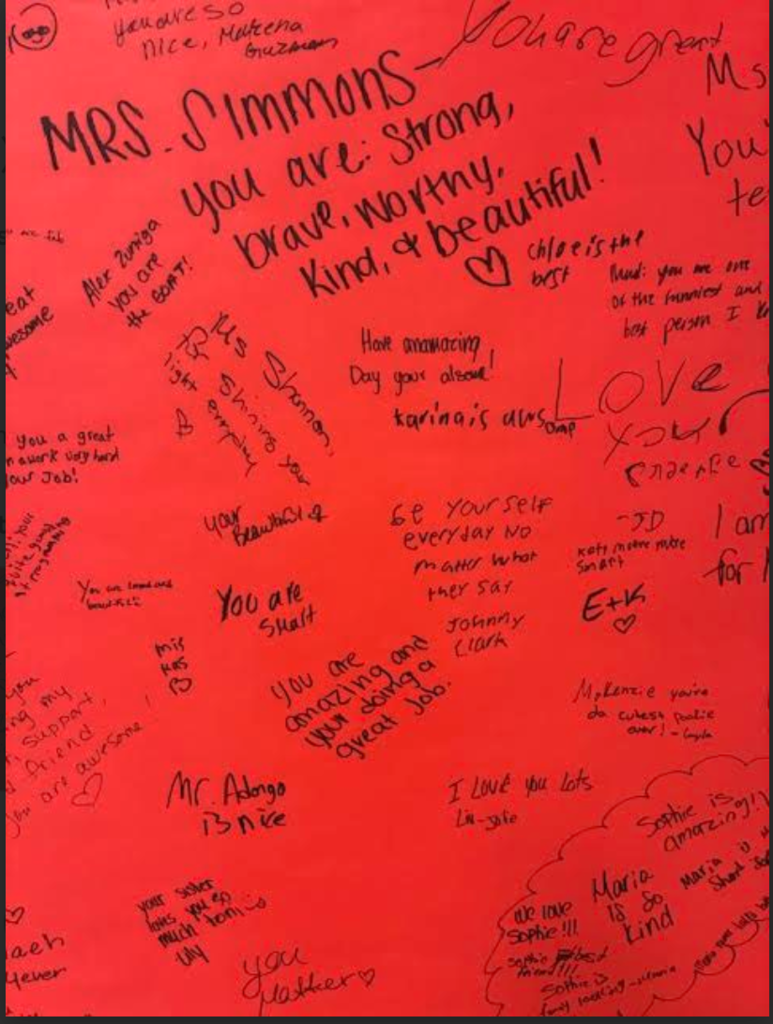 you are so
nice, Mateena
Guzman
You are great
Ms
MRS. SIMMONS-
you are: Strong,
brave, worthy,
Kind, & beautiful!
You
te
Alex Zuniga
you are
the GOAT!
chloe is the
best
you are one
of the funniest and
best person I
eat
awesome
Ms Shannon,
Shining your
light everyday
Have anamazing
Day your alsome!
Karina is aws
LOVE
you a great
work very hard
our Job!
your
Beautiful
Be Your self
everyday NO
matter what
they say
Johnny
Clark
-JD
smart
I am
for
E+K
You are loved and
beautiful
You are
Smart
mis
kas
you are
amazing and
your doing a
great Job.
you
ng my
support,
friend
you are awesome
McKenzie you're
da cutest pookie
ever!
Mr. Adongo
is nice
I Love you Lots
Sophie is
amazing!!
Maria
is so
kind
Maria is
short
we love
Sophie!!!
sophie best
friend!!!
Sophie is
your sister
loves you so
much tom
Lily
4ever
you
Matter